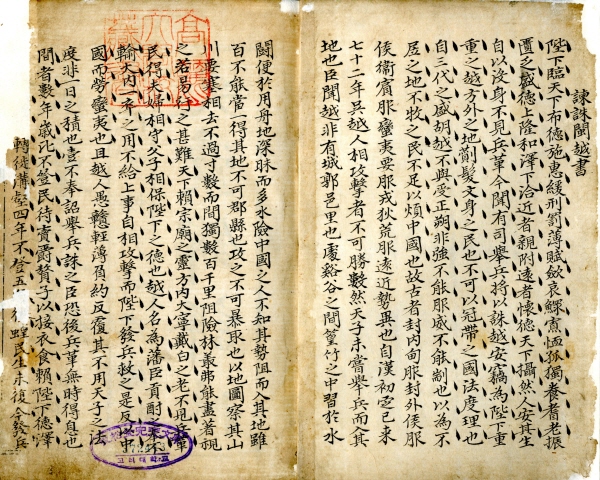 諫誅閩越書
陛下臨天下布德施惠緩刑罰薄賦斂哀鰥寡恤孤獨養耆老振
匱乏盛德上隆和澤下洽近者親附遠者懷德天下攝然人安其生
自以沒身不見兵革今聞有司舉兵將以誅越安竊為陛下重
重之越方外之地劗髮文身之民也不可以冠帶之國法度理也
自三代之盛胡越不與受正朔非強不能服威不能制也以為不
居之地不牧之民不足以煩中國也故古者封內甸服封外侯服
侯衛賓服蠻夷要服戎狄荒服遠近勢異也自漢初定已來
七十二年吳越人相攻擊者不可勝數然天子未嘗舉兵而入其
地也臣聞越非有城郭邑里也處谿谷之間篁竹之中習於水
鬪便於用舟地深昧而多水險中國之人不知其勢阻而入其地雖
百不能當一得其地不可郡縣也攻之不可暴取也以地圖察其山
川要塞相去不過寸數而間獨數百千里阻險林叢弗能盡著視
之若易行之甚難天下賴宗廟之靈方內大寧戴白之老不見兵革
民得夫婦相守父子相保陛下之德也越人名為藩臣貢酎之奉不
輸大內一卒之用不給上事自相攻擊而陛下發兵救之是反以中
國而勞蠻夷也且越人愚戇輕薄負約反覆其不用天子之法
度非一日之積也壹不奉詔舉兵誅之臣恐後兵革無時得息也
間者數年歲比不登民待賣爵贅子以接衣食賴陛下德澤
轉徙溝壑四年不登五復蝗民生未復今發兵